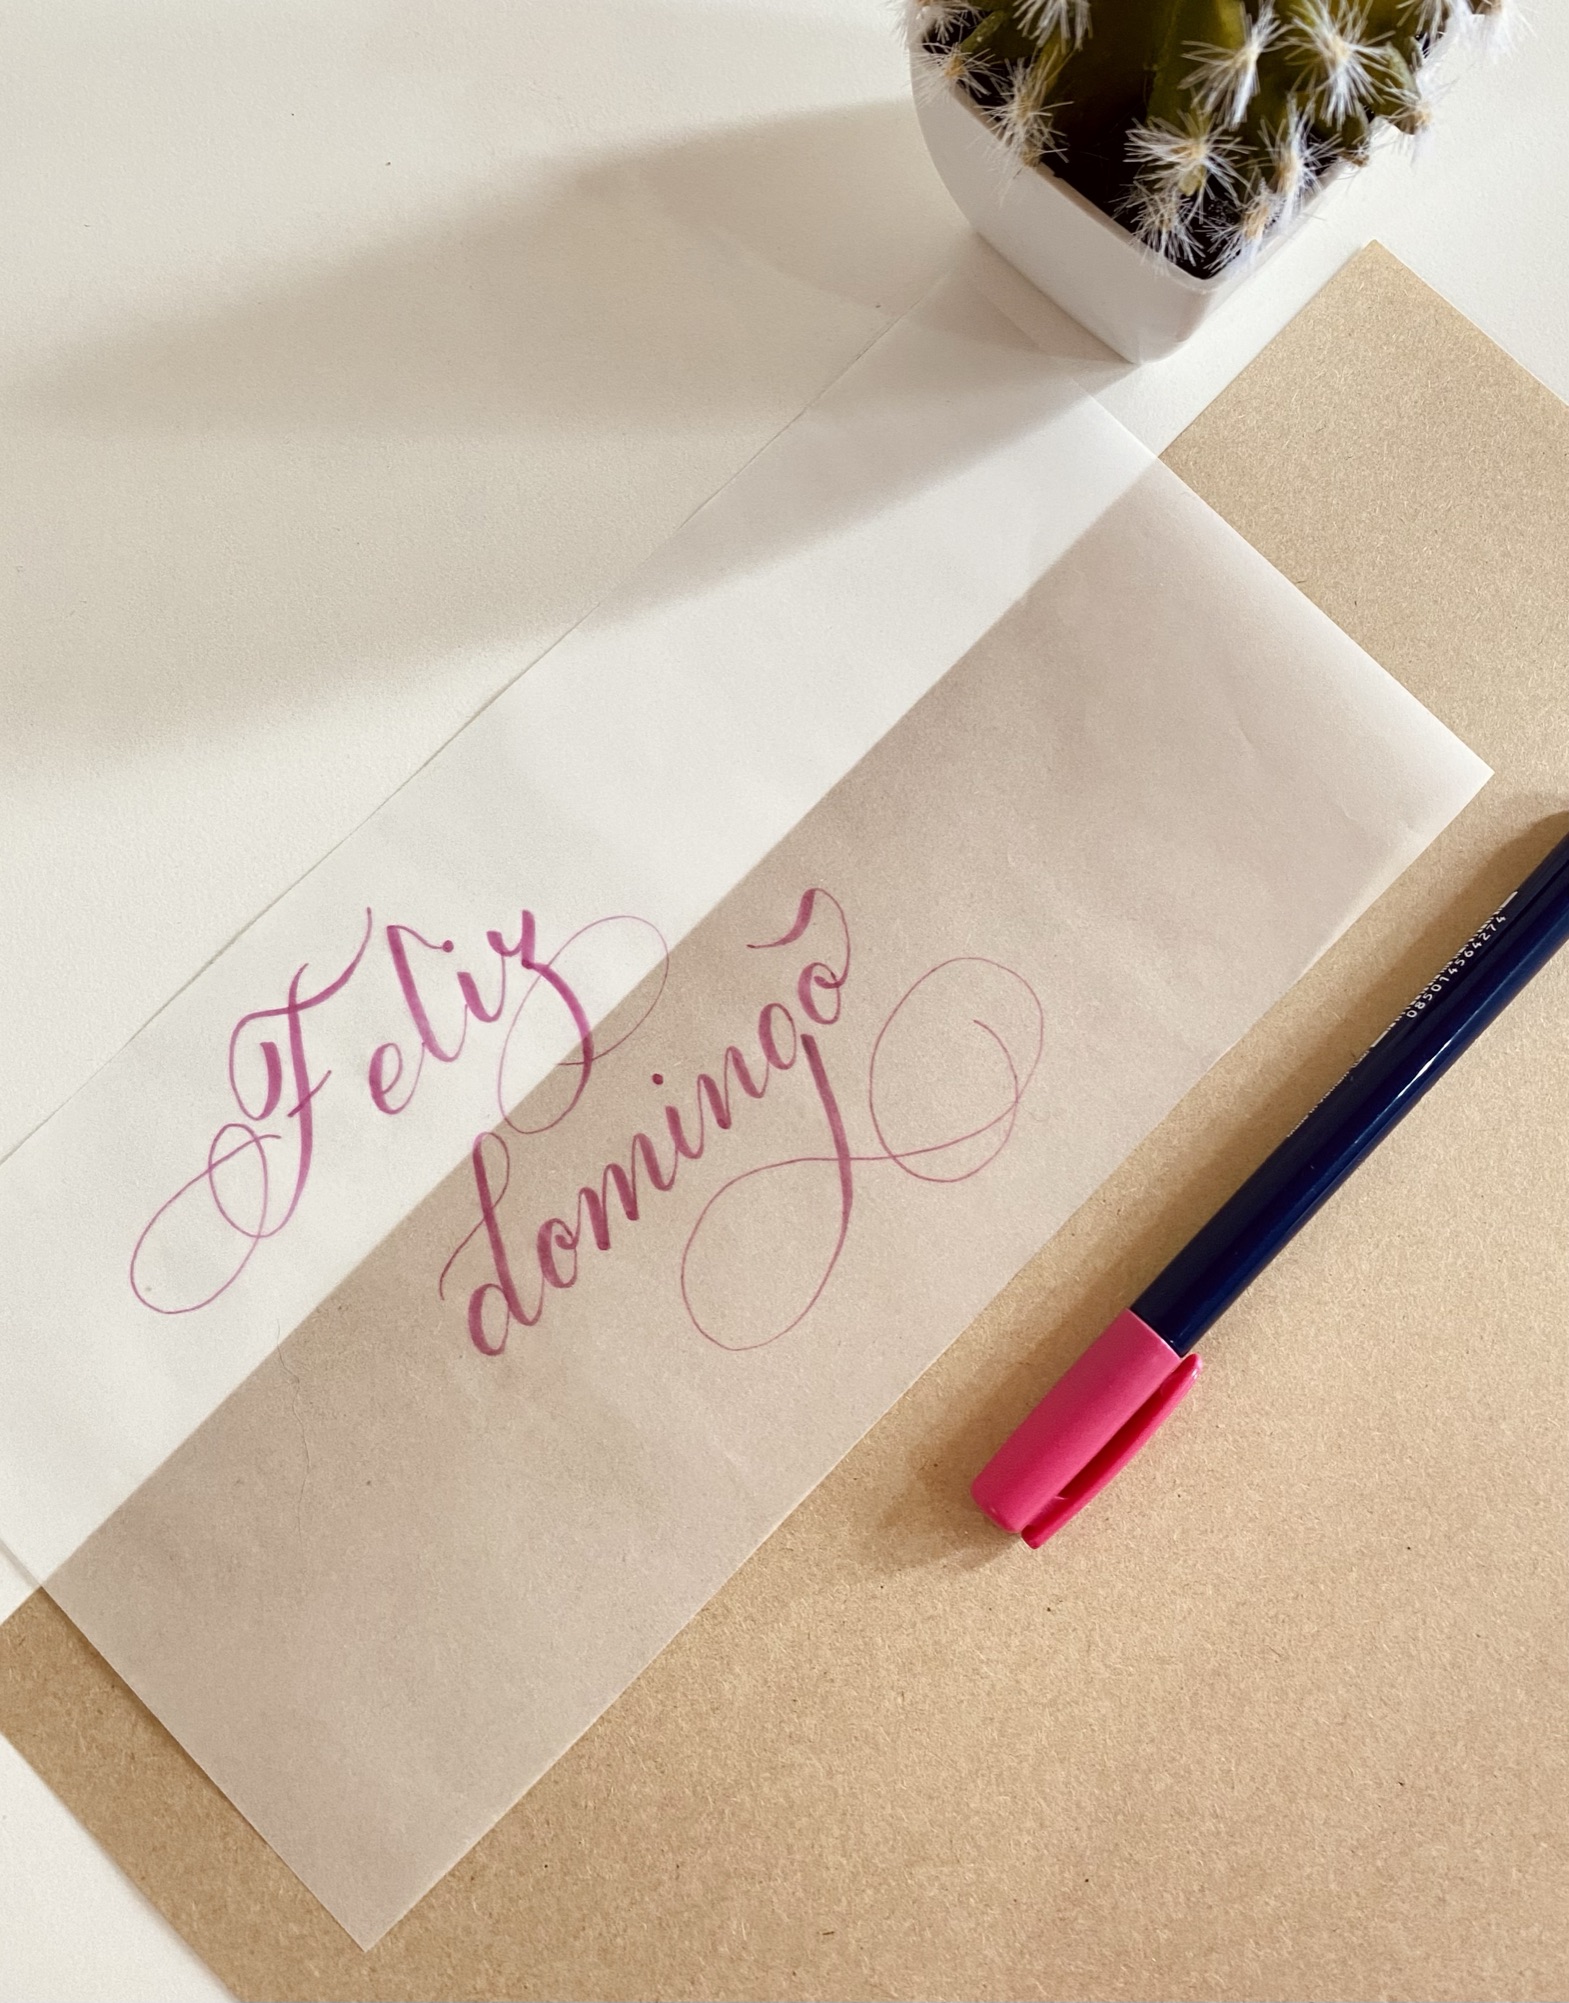 Feliz
domingo
085014564274